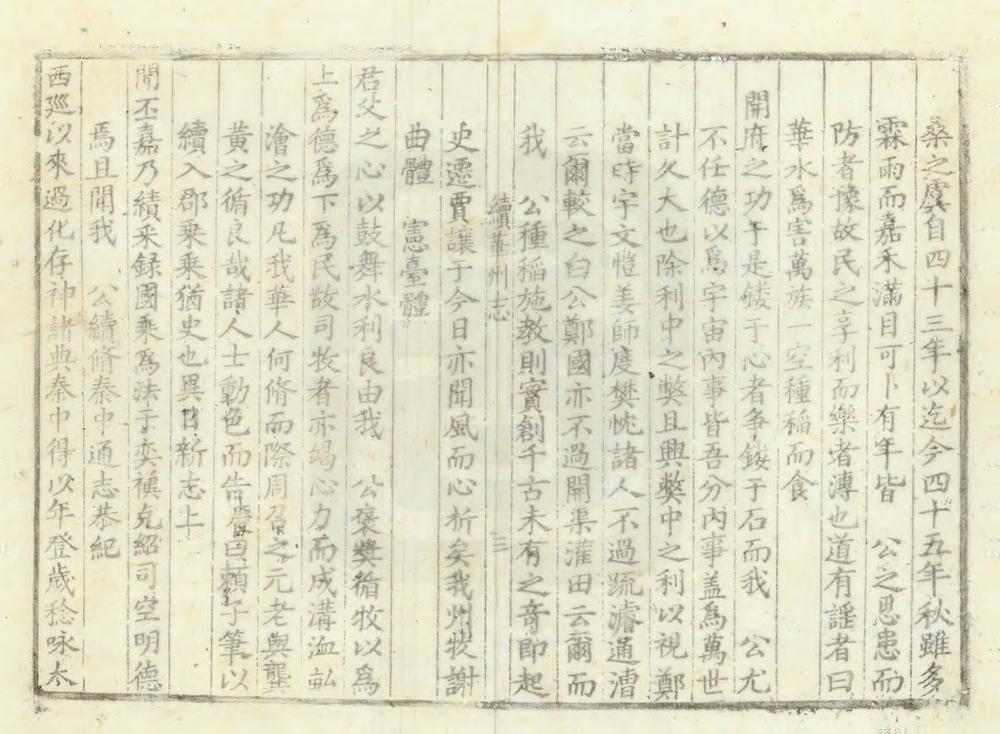 桑之虞自四十三年以迄今四十五年秋雖多
霖雨而嘉禾滿目可卜有年皆　公之思患而
防者豫故民之享利而樂者溥也道有謡者曰
華水爲害萬族一空種稻而食
開府之功于是鏤于心者爭鏤于石而我　公尤
不任德以爲宇宙內事皆吾分內事盖爲萬世
計久大也除利中之獘且興獘中之利以視鄭
當時宇文愷姜師度樊忱諸人不過疏濬通漕
云爾較之白公鄭國亦不過開渠灌田云爾而
我　公種稻施教則實創千古未有之奇即起
續華州志　三
史遷賈讓于今日亦聞風而心折矣我州牧謝
曲體　憲臺體
君父之心以鼓舞水利良由我　公褒奬循牧以爲
上爲德爲下爲民故司牧者亦竭心力而成溝洫畝
澮之功凡我華人何脩而際周召之元老與龔
黃之循良哉諸人士動色而告慶曰頼子筆以
續入郡乘乘猶史也異日新志上
聞丕嘉乃績采録國乘爲法于奕禩克紹司空明德
焉且聞我　公續脩秦中通志恭紀
西廵以來過化存神諸典秦中得以年登歲稔咏太